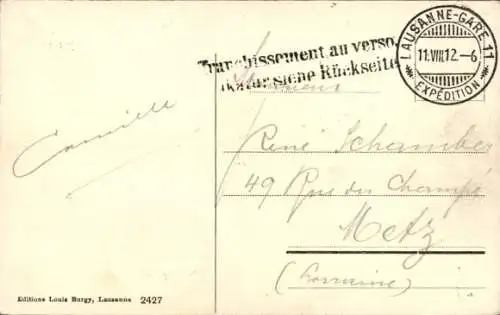 LAUSANNE-GARE 11
11.VIII.12.-6
EXPÉDITION
Franchissement au verso.
Frankatur siehe Rückseite
Monsieur
Camille
René Schamber
49 Rue des Champé
Metz
(Lorraine)
Editions Louis Burgy, Lausanne 2427